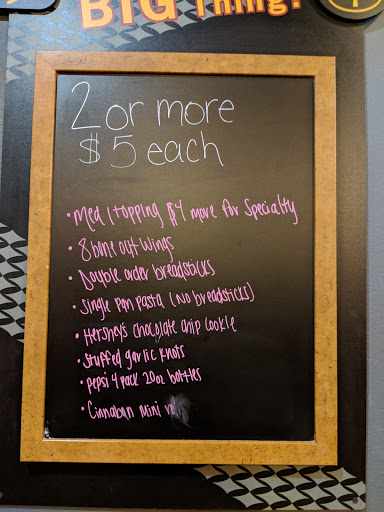 BIG Thing!
2 or more
$5 each
• Med 1 topping $4 more for Specialty
• 8 bone out wings
• Double order breadsticks
• Single Pan Pasta (No breadsticks)
• Hershey's chocolate chip cookie
• Stuffed garlic knots
• pepsi 4 pack 20oz bottles
• Cinnabon mini